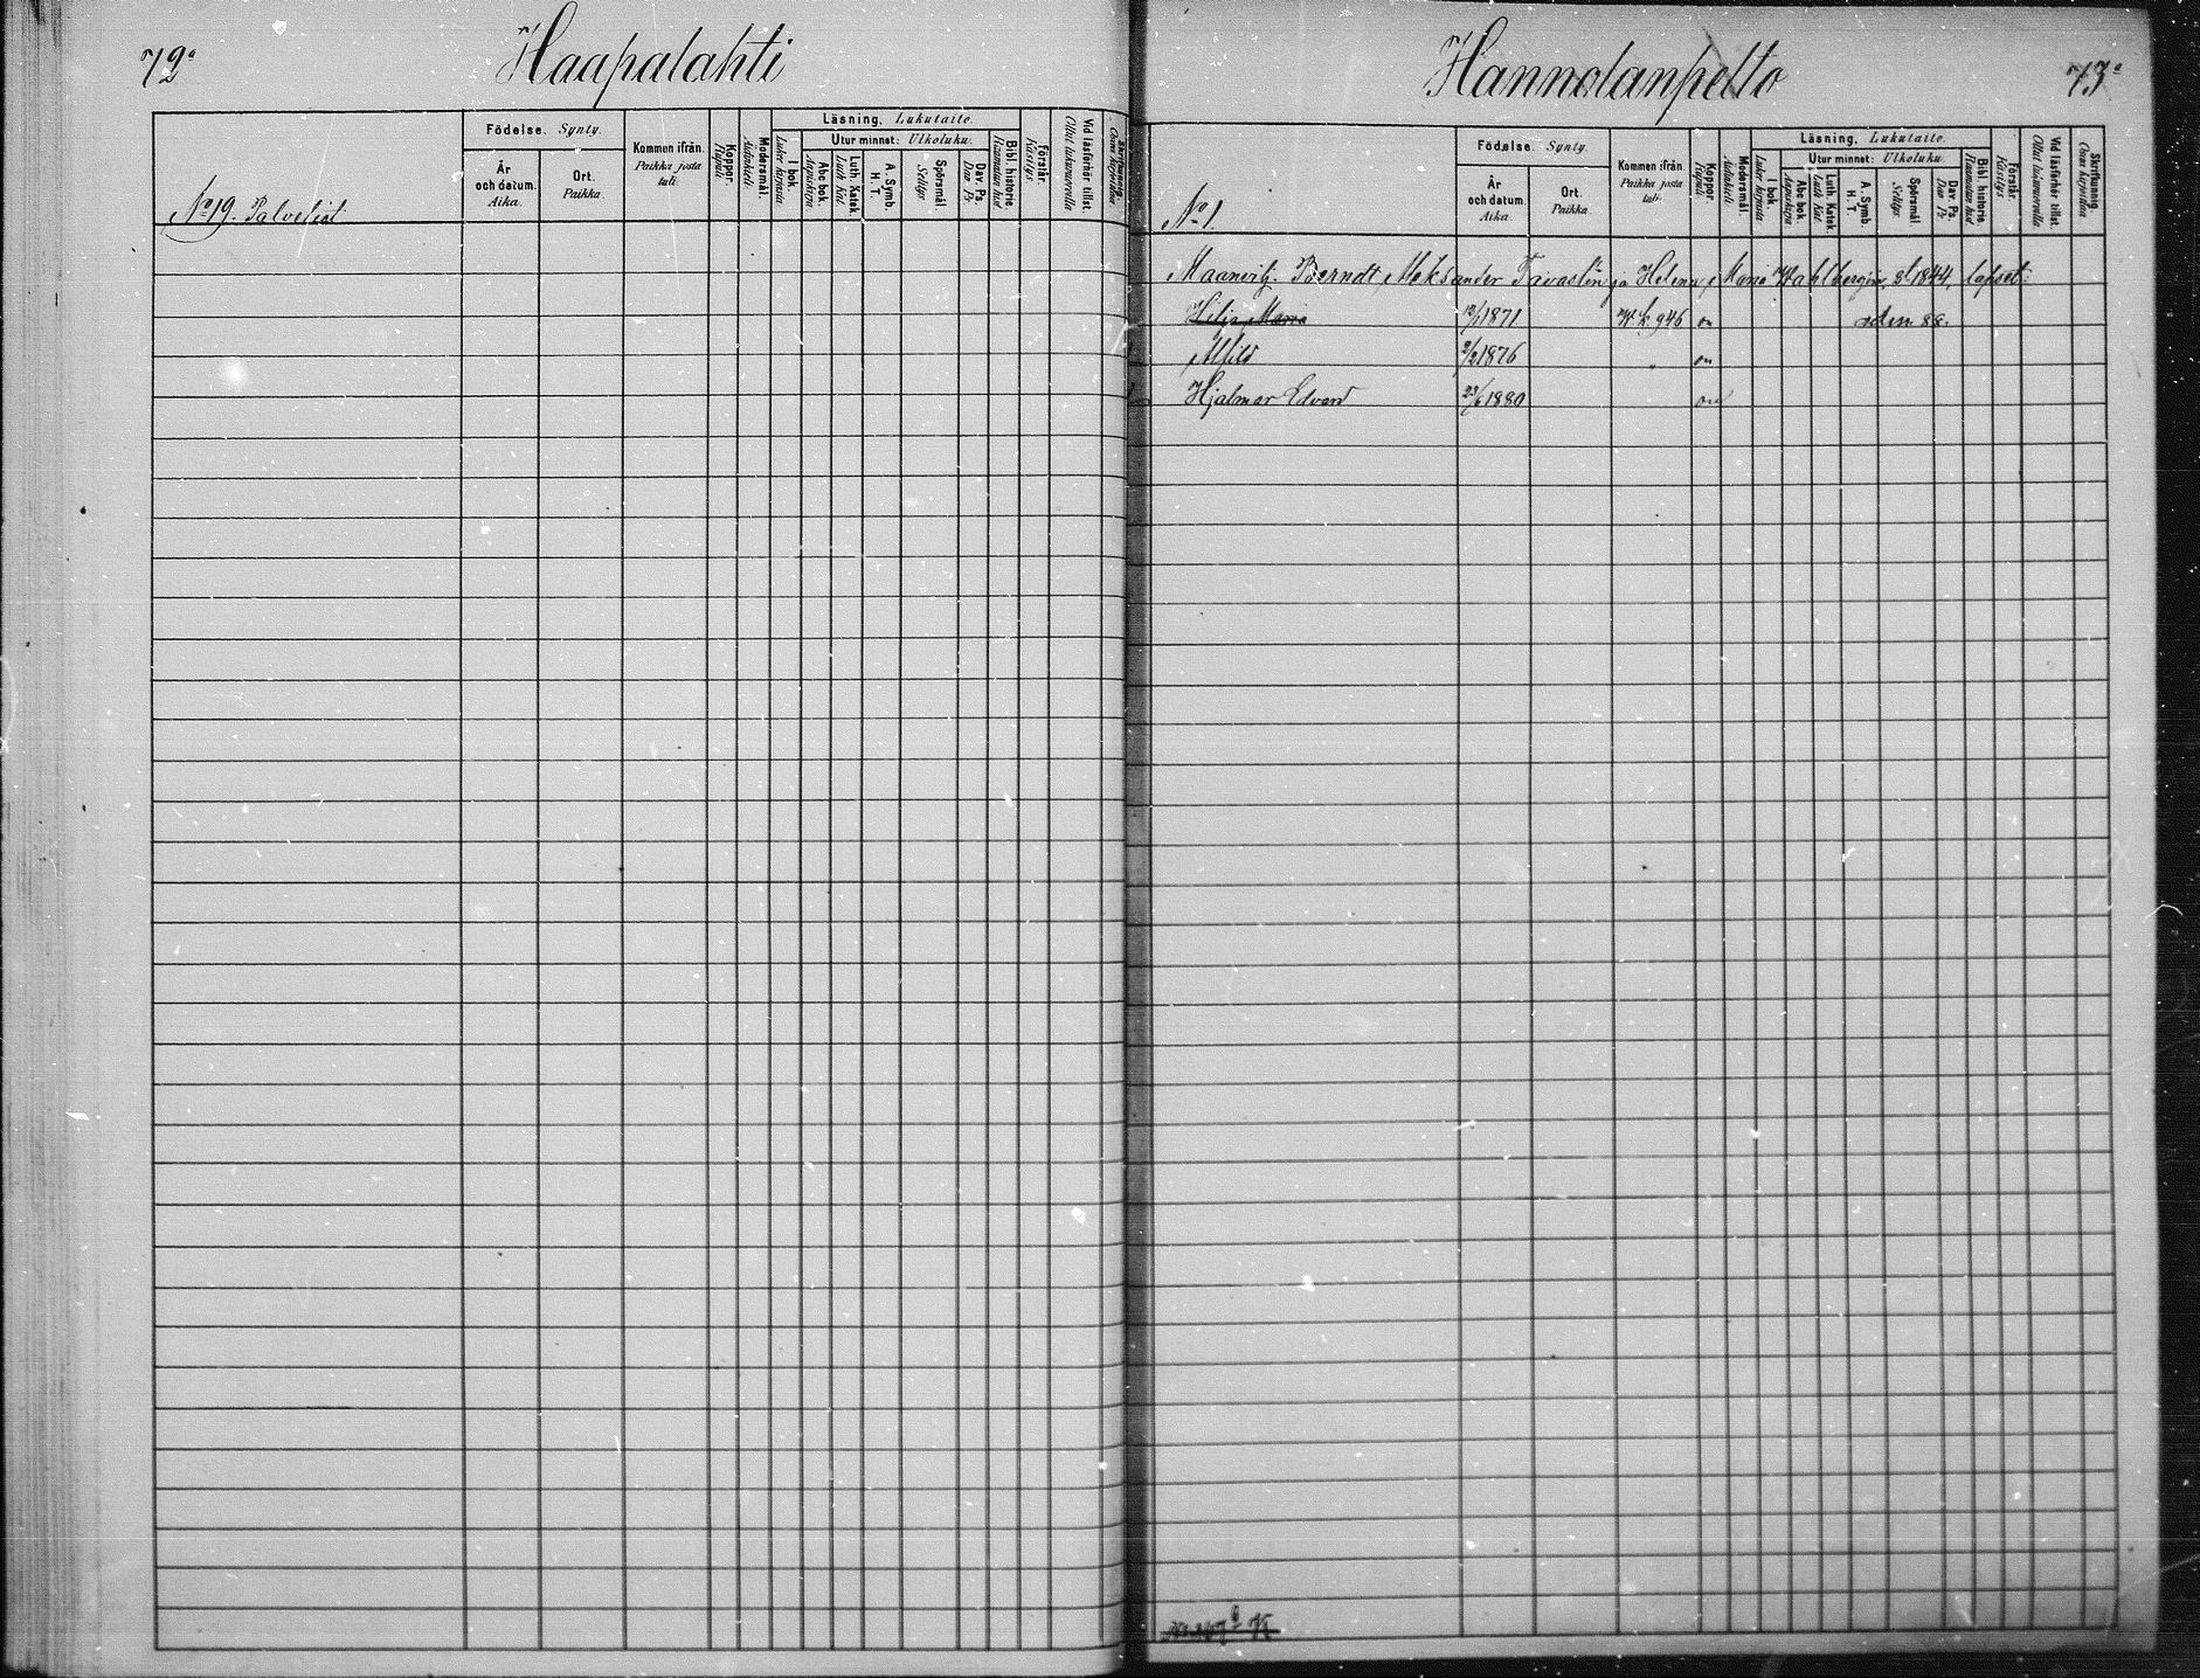 72.
Haapalahti
Födelse. Synty.
Kommen ifrån.
Paikka josta tuli.
Koppor.
Rupuli
Modersmål.
Äidinkieli
Läsning. Lukutaito.
I bok.
Lukee kirjasta
Utur minnet: Ulkoluku.
Abc bok.
Aapiskirja
Luth. Katek.
Luth. Kat.
A. Symb. H. T.
Spörsmål.
Selitys
Dav. Ps.
Dav. Ps.
Bibl. historie
Raamatun hist.
Förstår.
Käsitys
Vid läsförhör tillst.
Ollut lukuvuorolla
Skrifkunnig.
Osaa kirjoittaa
År och datum.
Aika.
Ort.
Paikka.
No 19. Palveliat
Hannolanpelto
73.
Födelse. Synty.
Kommen ifrån.
Paikka josta tuli.
Koppor.
Rupuli
Modersmål.
Äidinkieli
Läsning. Lukutaito.
I bok.
Lukee kirjasta
Utur minnet: Ulkoluku.
Abc bok.
Aapiskirja
Luth. Katek.
Luth. Kat.
A. Symb. H. T.
Spörsmål.
Selitys
Dav. Ps.
Dav. Ps.
Bibl. historie.
Raamatun hist.
Förstår.
Käsitys
Vid läsförhör tillst.
Ollut lukuvuorolla
Skrifkunnig.
Osaa kirjoittaa
År och datum.
Aika.
Ort.
Paikka.
No 1.
Maanvilj. Berndt Aleksander Tavastin ja Helena Maria Wahlbergin, s. 1844, lapset:
Hilja Maria 1871 946 on 88.
Alfild 2/2 1876 " on
Hjalmar Edvard 23/6 1880 on